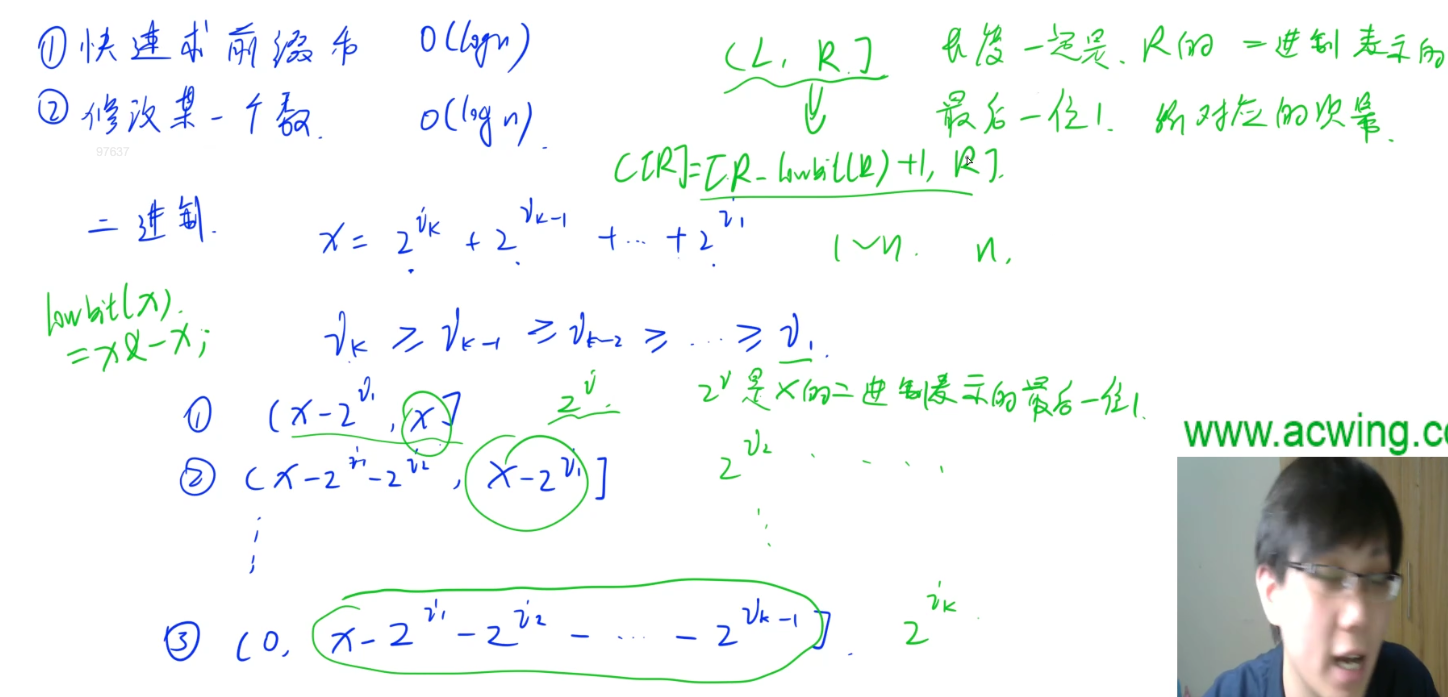 ① 快速求前缀和 O(logn)
② 修改某一个数. O(logn).
97637
(L, R] 长度一定是. R的 二进制表示的
最后一位1. 所对应的次幂.
C[R]=[R-lowbit(R)+1, R].
二进制. x = 2^{i_k} + 2^{i_{k-1}} + ... + 2^{i_1} 1~n. n.
lowbit(x).
= x & -x;
i_k ≥ i_{k-1} ≥ i_{k-2} ≥ ... ≥ i_1.
① (x-2^{i_1}, x] 2^{i}. 2^{i}是x的二进制表示的最后一位1.
② (x-2^{i_1}-2^{i_2}, x-2^{i_1}] 2^{i_2} ....
⋮ ⋮
③ (0, x-2^{i_1}-2^{i_2}-...-2^{i_{k-1}}]. 2^{i_k}
www.acwing.co